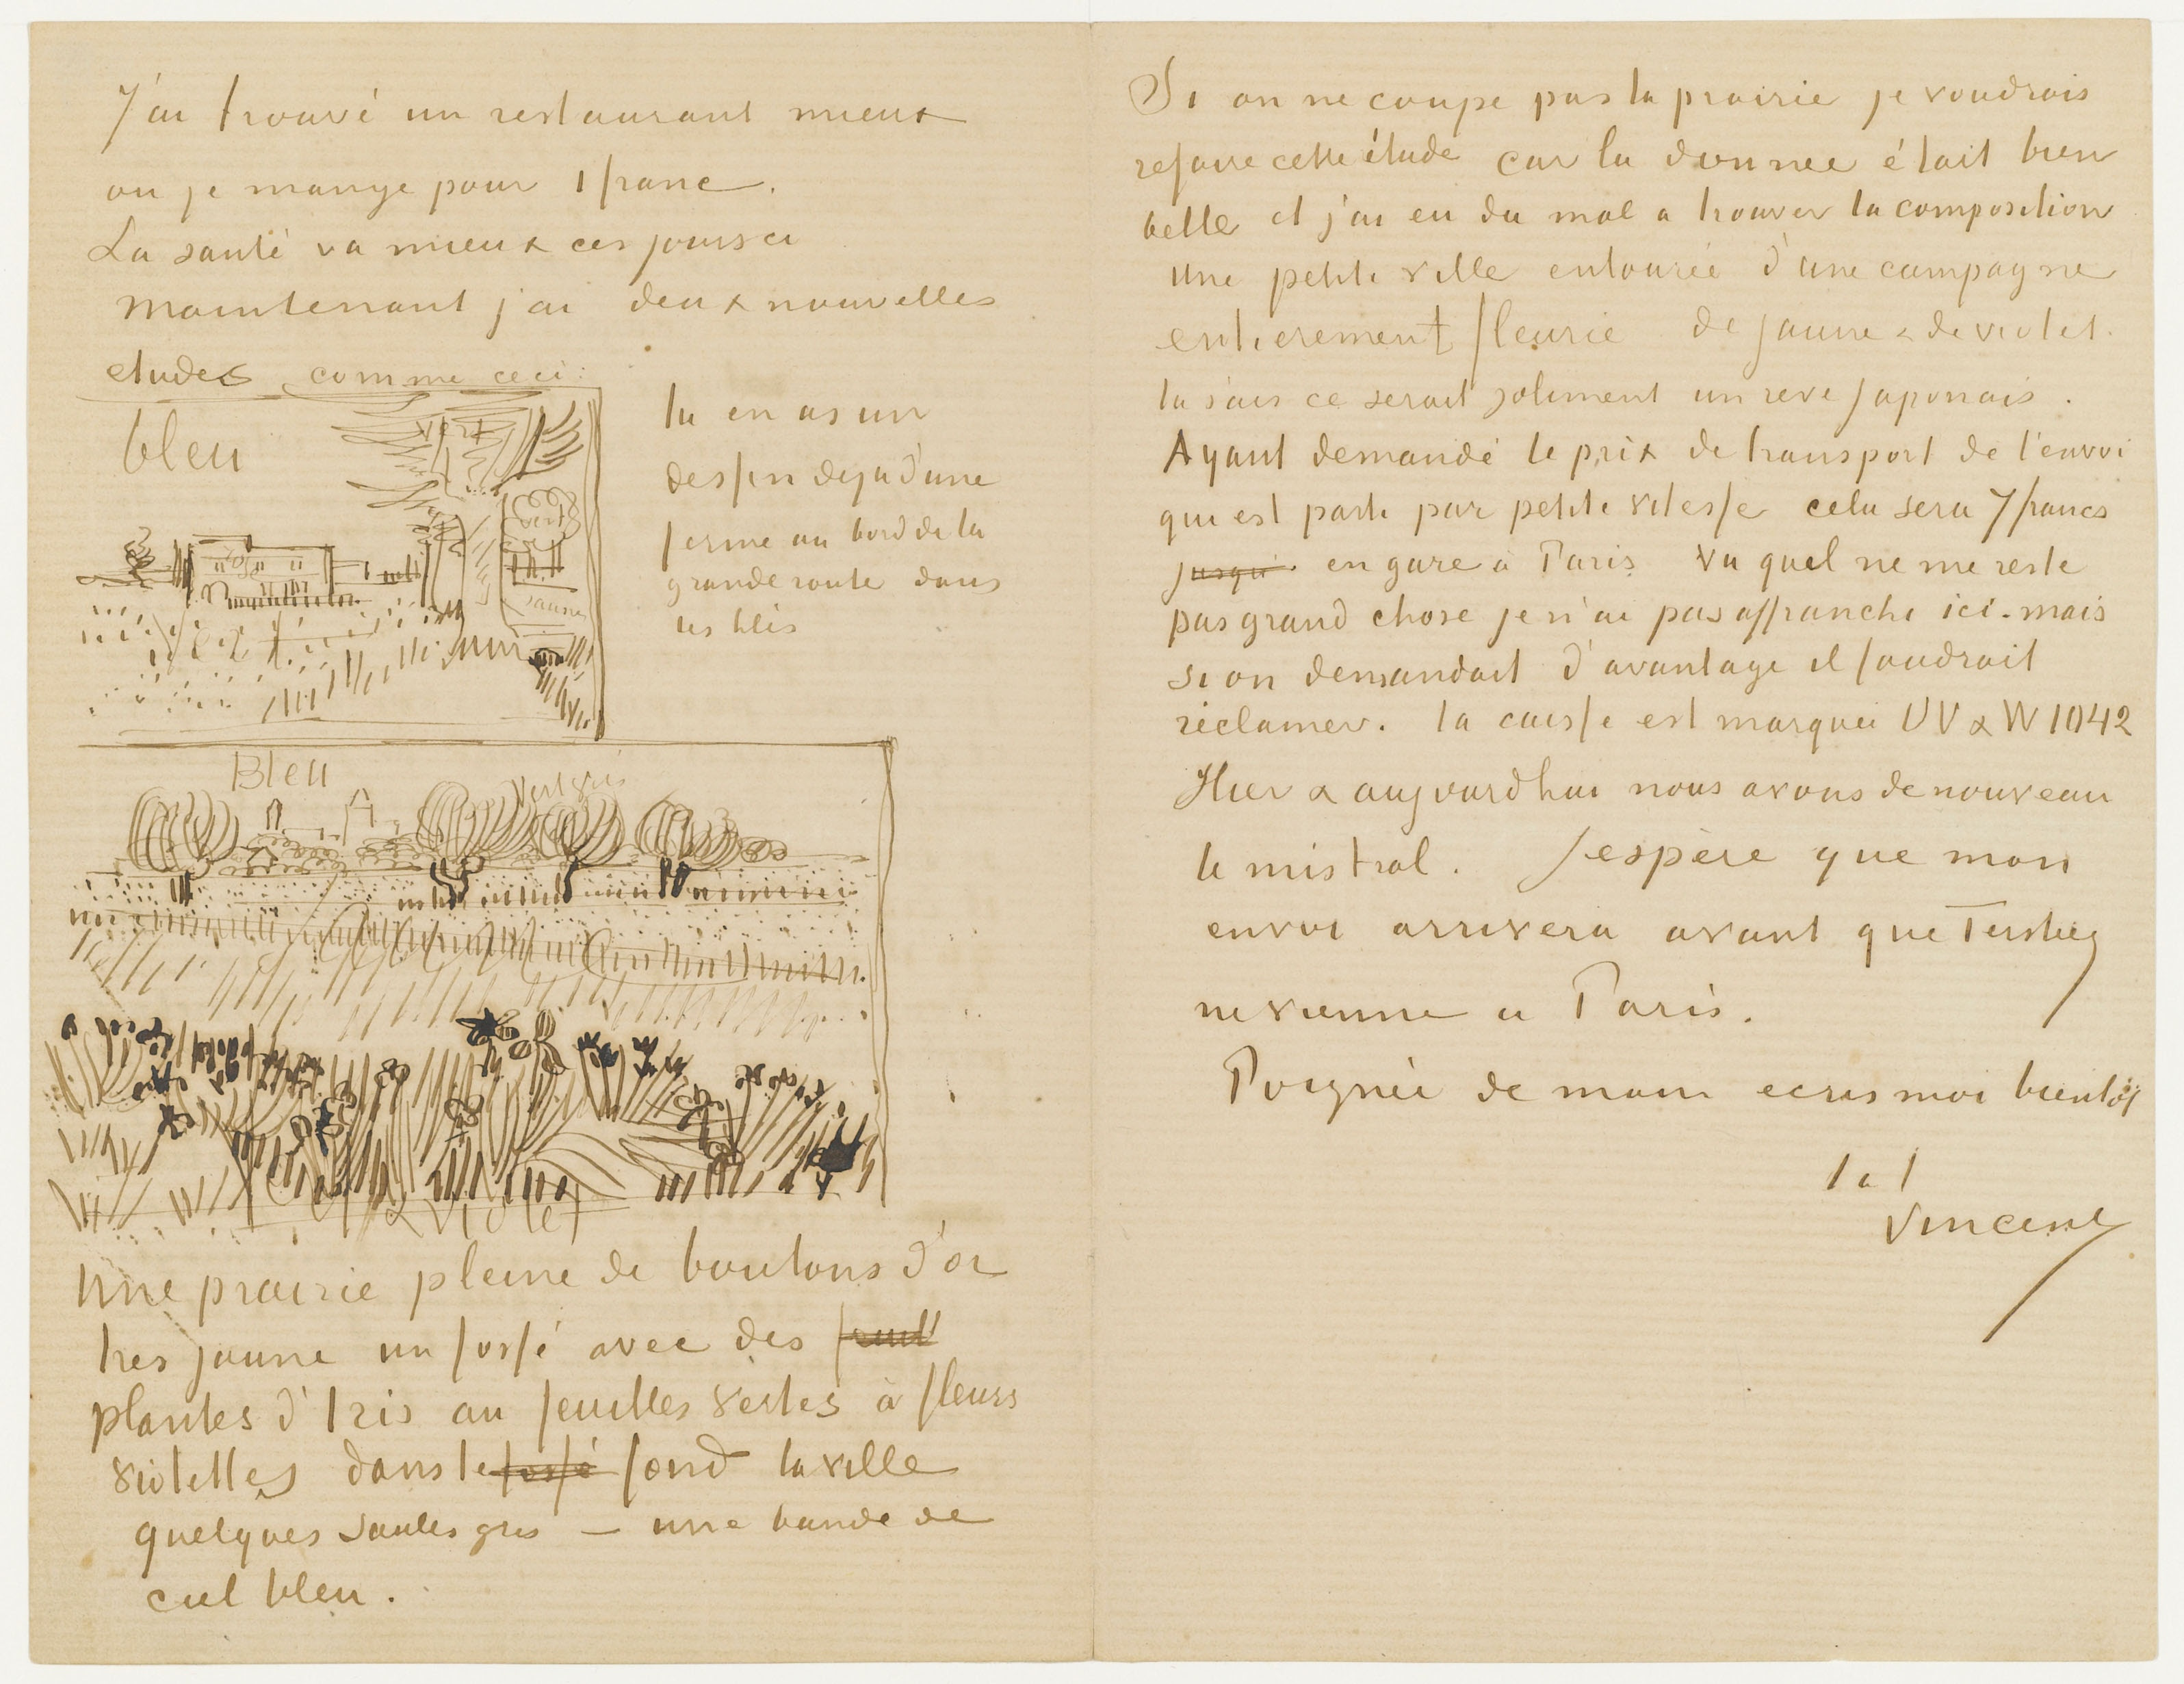 J'ai trouvé un restaurant mieux
ou je mange pour 1 franc.
La santé va mieux ces jours ci
Maintenant j'ai deux nouvelles
etudes comme ceci:
bleu
vert
vert
rose
jaune
tu en as un
dessin deja d'une
ferme au bord de la
grande route dans
les blés
Bleu
Vert gris
& violet
Une prairie pleine de boutons d'or
tres jaune un fossé avec des
plantes d'Iris au feuilles vertes à fleurs
violettes dans le fossé fond la ville
quelques saules gris – une bande de
ciel bleu.
Si on ne coupe pas la prairie je voudrais
refaire cette étude car la donnee était bien
belle et j'ai eu du mal a trouver la composition
Une petite ville entourée d'une campagne
entierement fleurie de jaune & de violet.
tu sais ce serait joliment un reve japonais.
Ayant demandé le prix de transport de l'envoi
qui est parti par petite vitesse cela sera 7 francs
jusqu' en gare à Paris Vu quel ne me reste
pas grand chose je n'ai pas affranchi ici. mais
si on demandait d'avantage il faudrait
réclamer. la caisse est marquée UV & W 1042
Hier & aujourdhui nous avons de nouveau
le mistral. J'espère que mon
envoi arrivera avant que Tersteeg
ne vienne a Paris.
Poignée de main ecris moi bientôt
t. à t.
Vincent